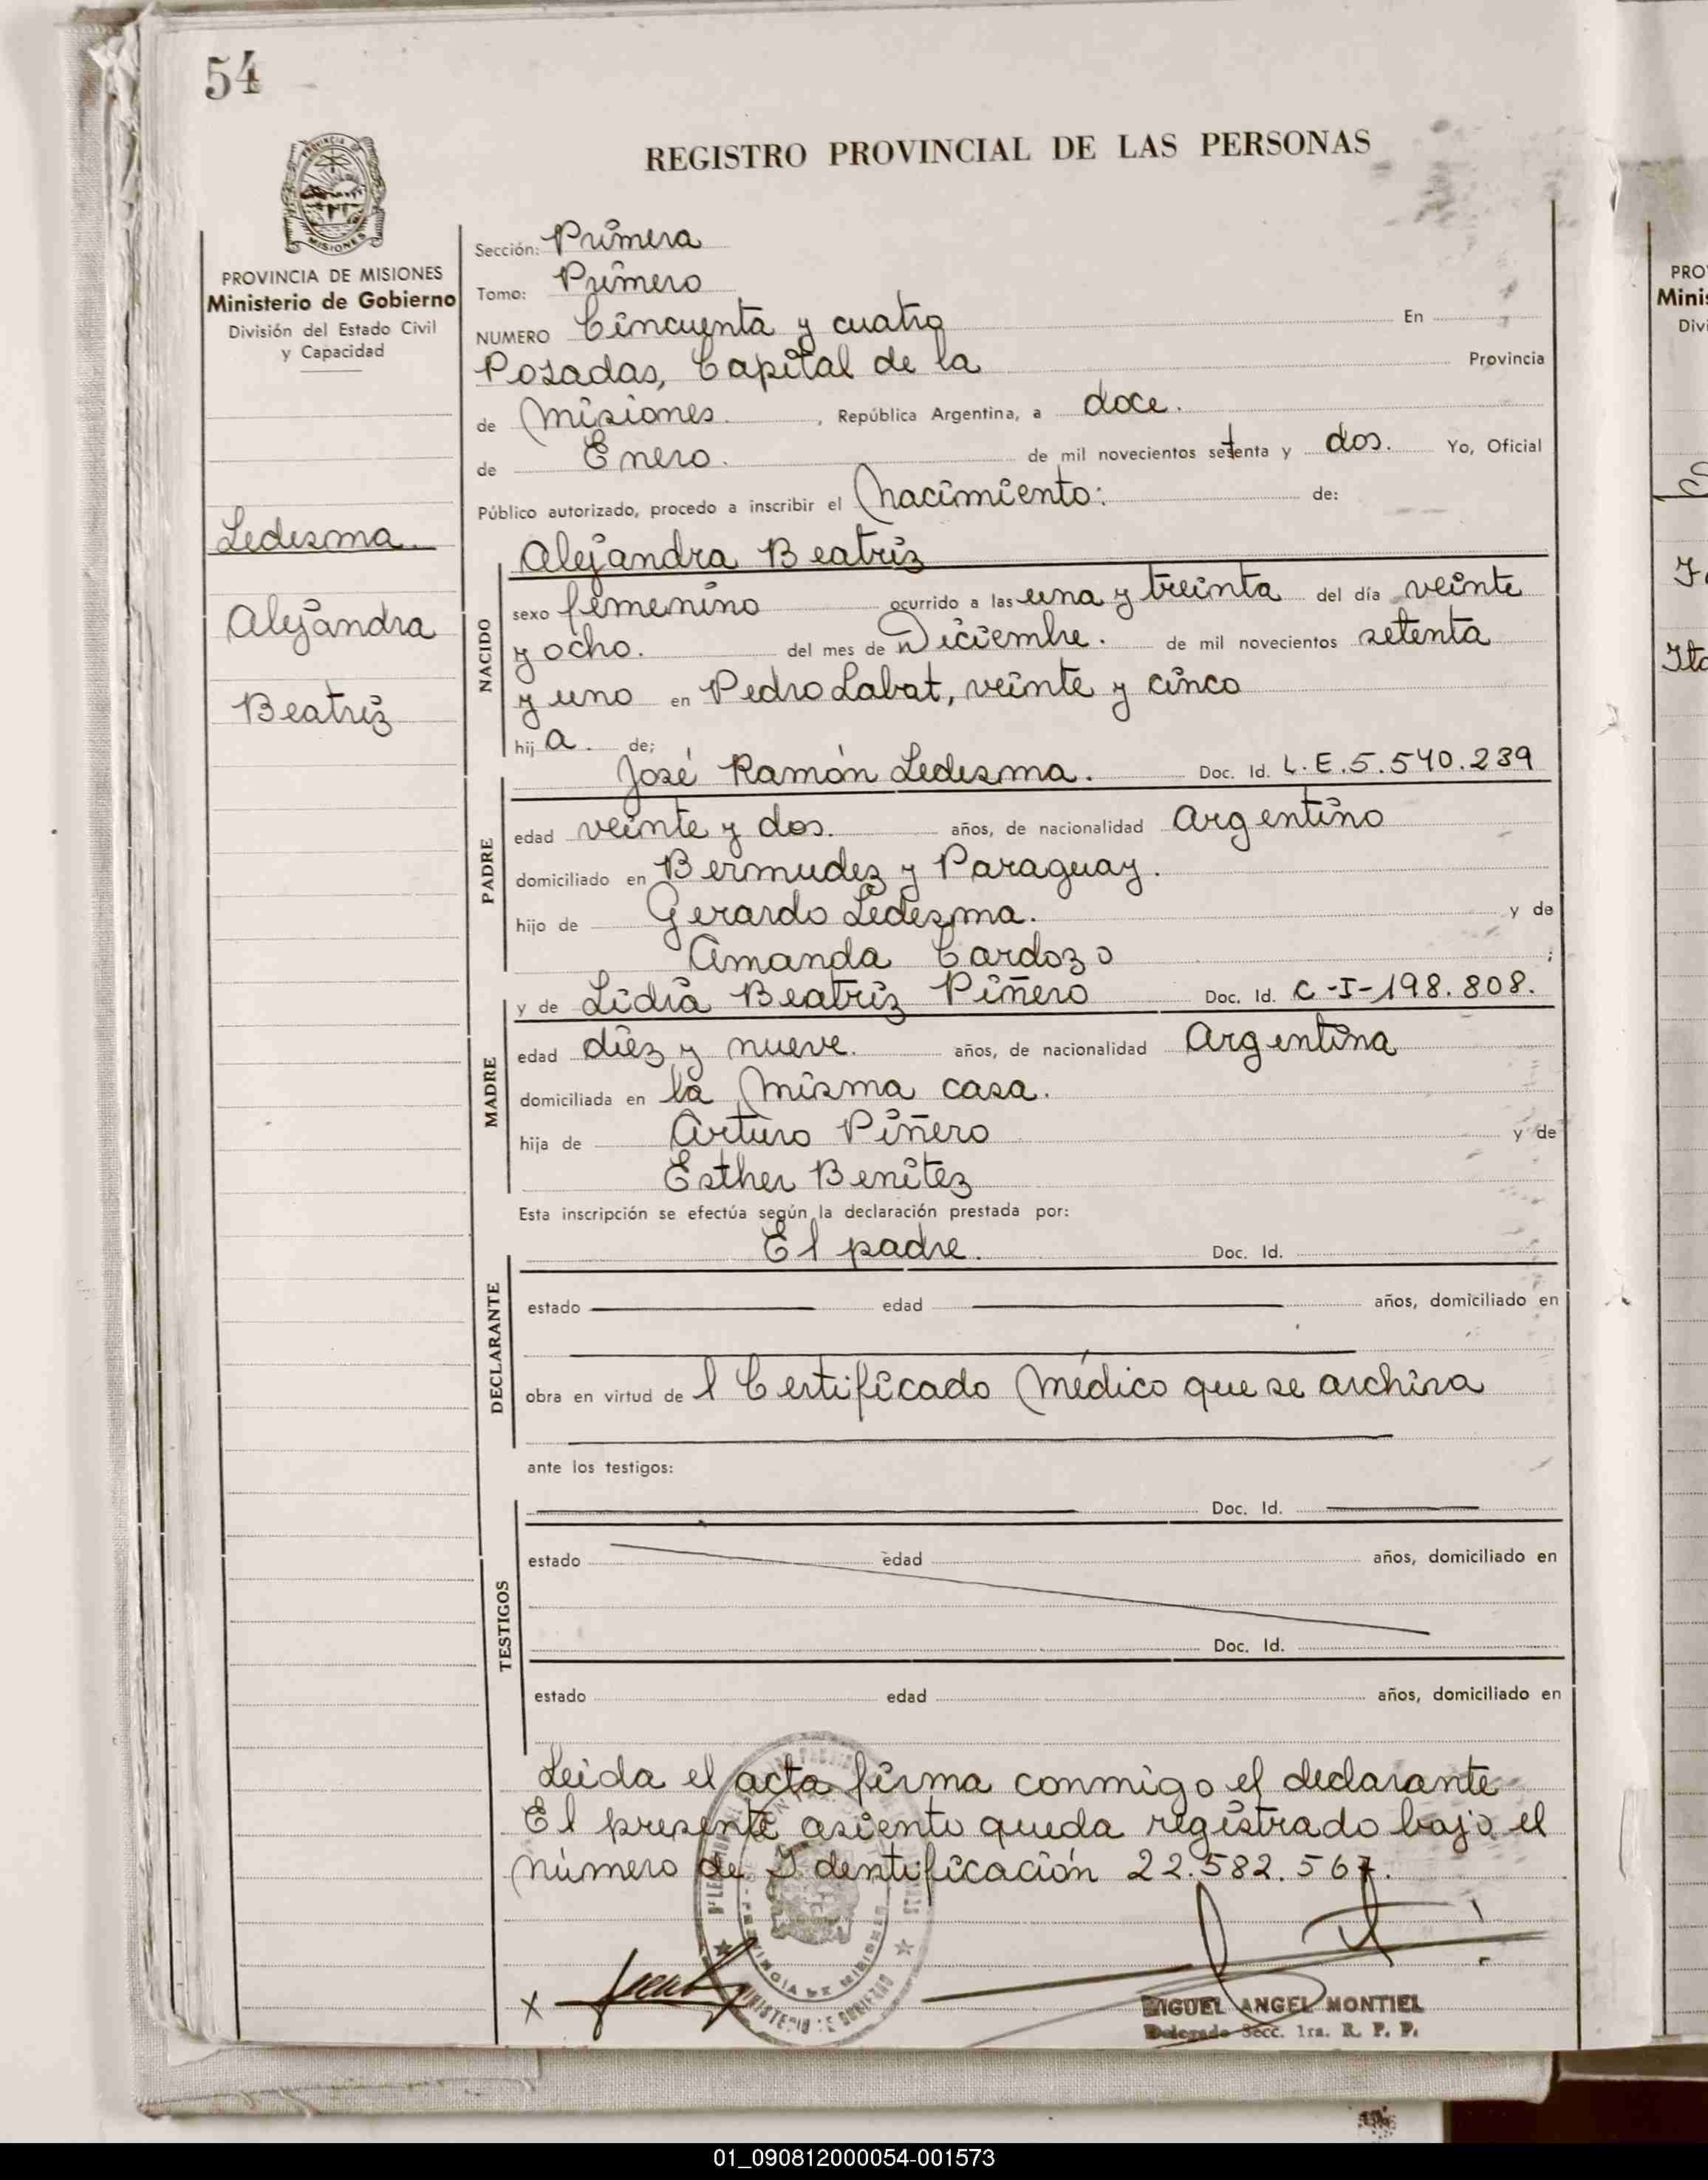 54
REGISTRO PROVINCIAL DE LAS PERSONAS
PROVINCIA DE MISIONES
Ministerio de Gobierno
División del Estado Civil
y Capacidad
Ledesma.
Alejandra
Beatriz
Sección: Primera
Tomo: Primero
NUMERO Cincuenta y cuatro En
Posadas, Capital de la Provincia
de Misiones. , República Argentina, a doce.
de Enero. de mil novecientos setenta y dos. Yo, Oficial
Público autorizado, procedo a inscribir el Nacimiento: de:
Alejandra Beatriz
NACIDO
sexo femenino ocurrido a las una y treinta del día veinte
y ocho. del mes de Diciembre. de mil novecientos setenta
y uno en Pedro Labat, veinte y cinco
hij a. de;
José Ramón Ledesma. Doc. Id. L.E.5.540.239
PADRE
edad veinte y dos. años, de nacionalidad Argentino
domiciliado en Bermudez y Paraguay.
hijo de Gerardo Ledezma. y de
Amanda Cardozo ;
y de Lidia Beatriz Piñero Doc. Id. C-I-198.808.
MADRE
edad diez y nueve. años, de nacionalidad Argentina
domiciliada en la Misma casa.
hija de Arturo Piñero y de
Esther Benítez
Esta inscripción se efectúa según la declaración prestada por:
El padre. Doc. Id.
DECLARANTE
estado edad años, domiciliado en
obra en virtud de l Certificado Médico que se archiva
ante los testigos:
Doc. Id.
TESTIGOS
estado edad años, domiciliado en
Doc. Id.
estado edad años, domiciliado en
Leida el acta firma conmigo el declarante
El presente asiento queda registrado bajo el
número de Identificación 22.582.567.
X
MIGUEL ANGEL MONTIEL
Delegado Secc. 1ra. R. P. P.
01_090812000054-001573